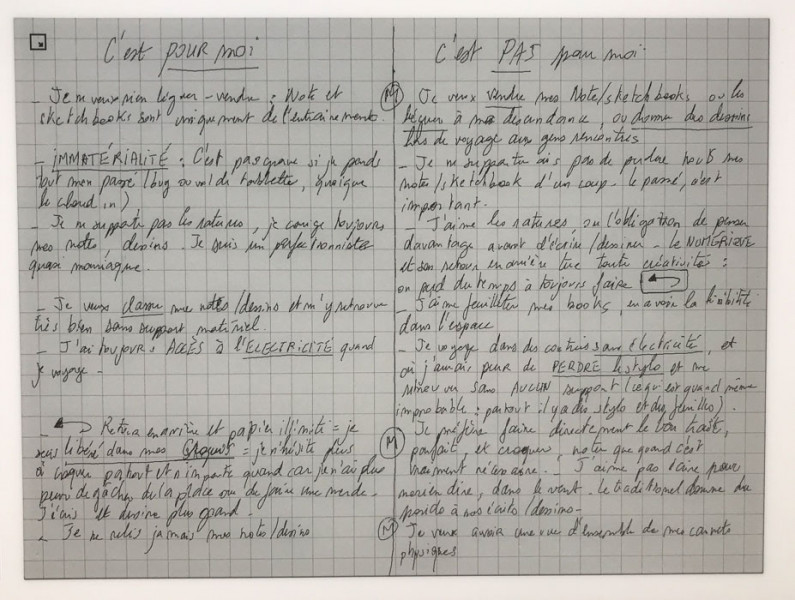 C'est POUR MOI
- Je ne veux rien léguer - vendre : Note et
sketchbooks sont uniquement de l'entrainement.
- IMMATÉRIALITÉ : C'est pas grave si je perds
tout mon passé (bug ou vol de tablette, quoique
le cloud in)
- Je ne supporte pas les ratures, je corrige toujours
mes notes, dessins. Je suis un perfectionniste
quasi maniaque.
- Je veux classer mes notes/dessins et m'y retrouver
très bien sans support matériel.
- J'ai toujours ACCÈS à l'ELECTRICITÉ quand
je voyage -
- Retour en arrière et papier illimité = je
suis libéré dans mes croquis = je n'hésite plus
à croquer partout et n'importe quand car je n'ai plus
peur de gâcher de la place ou de faire une merde.
J'écris et dessine plus grand.
- Je ne relis jamais mes notes/dessins
C'est PAS pour moi
M Je veux vendre mes Note/sketchbooks ou les
léguer à ma descendance, ou donner des dessins
de voyage aux gens rencontrés
- Je ne supporterais pas de perdre tous mes
notes/sketchbook d'un coup. le passé, c'est
important.
- J'aime les ratures, ou l'obligation de penser
davantage avant d'écrire/dessiner - le NUMÉRIQUE
et son retour en arrière tue toute créativité :
on perd du temps à toujours faire
- J'aime feuilleter mes books, en avoir la lisibilité
dans l'espace
- Je voyage dans des contrées sans électricité, et
où j'aurais peur de PERDRE le stylo et me
retrouver sans AUCUN support (ce qui est quand même
improbable : partout il y a des stylo et des feuilles).
M Je préfère faire directement le bon trait,
parfait, et croquer, noter que quand c'est
vraiment nécessaire. - J'aime pas faire pour
rien dire, dans le vent. Le traditionnel donne du
poids à nos écrits/dessins -
M Je veux avoir une vue d'ensemble de mes carnets
physiques